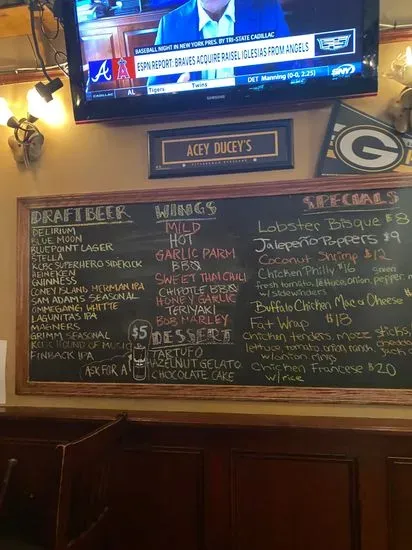 BASEBALL NIGHT IN NEW YORK PRES. BY TRI-STATE CADILLAC
ESPN REPORT: BRAVES ACQUIRE RAISEL IGLESIAS FROM ANGELS
CADILLAC
SNY
Tigers Twins
DET Manning (0-0, 2.25)
CADILLAC AL
SAMSUNG
ACEY DUCEY'S
G
DRAFT BEER
DELIRIUM
BLUE MOON
BLUEPOINT LAGER
STELLA
KCBC SUPERHERO SIDEKICK
HEINEKEN
GUINNESS
CONEY ISLAND MERMAN IPA
SAM ADAMS SEASONAL
OMMEGANG WHITTE
LAGUNITAS IPA
MAGNERS
GRIMM SEASONAL
HOUND OF MUSIC
FINBACK IPA
ASK FOR A
$5
WINGS
MILD
HOT
GARLIC PARM
BBQ
SWEET THAI CHILI
CHIPOTLE BBQ
HONEY GARLIC
TERIYAKI
BOB MARLEY
DESSERT
TARTUFO
HAZELNUT GELATO
CHOCOLATE CAKE
SPECIALS
Lobster Bisque $8
Jalepeño Poppers $9
Coconut Shrimp $12
Chicken Philly $16
fresh tomato, lettuce, onion, peppers
Buffalo Chicken Mac a Cheese
Fat Wrap $18
chicken tenders, mozz sticks
lettuce, tomato, onion, ranch,
w/ onion rings
Chicken Francese $20
w/ rice